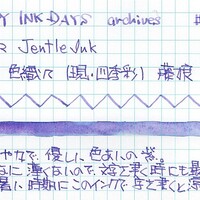 Y INK DAYS archives #
R Jentle Ink
色織々 (現・四季彩) 藤娘
やかなで、優しい色あいの紫。
に薄くないので、文字を書く時にも最
暑い時期にこのインクで字を書くと涼